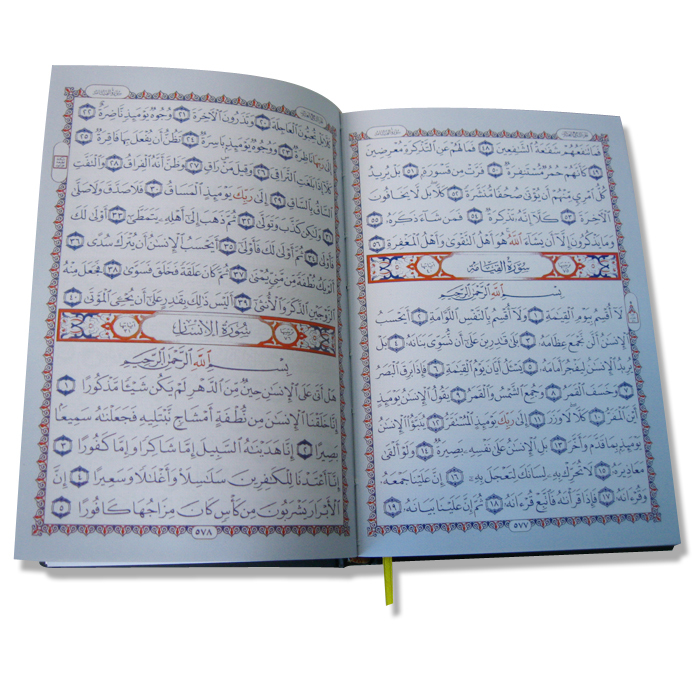 فَمَا تَنفَعُهُمْ شَفَٰعَةُ ٱلشَّٰفِعِينَ ٤٨ فَمَا لَهُمْ عَنِ ٱلتَّذْكِرَةِ مُعْرِضِينَ
٤٩ كَأَنَّهُمْ حُمُرٌ مُّسْتَنفِرَةٌ ٥٠ فَرَّتْ مِن قَسْوَرَةٍۭ ٥١ بَلْ يُرِيدُ
كُلُّ ٱمْرِئٍ مِّنْهُمْ أَن يُؤْتَىٰ صُحُفًا مُّنَشَّرَةً ٥٢ كَلَّا بَل لَّا يَخَافُونَ
ٱلْءَاخِرَةَ ٥٣ كَلَّآ إِنَّهُۥ تَذْكِرَةٌ ٥٤ فَمَن شَآءَ ذَكَرَهُۥ ٥٥
وَمَا يَذْكُرُونَ إِلَّآ أَن يَشَآءَ ٱللَّهُ هُوَ أَهْلُ ٱلتَّقْوَىٰ وَأَهْلُ ٱلْمَغْفِرَةِ ٥٦
سُورَةُ ٱلْقِيَامَةِ
بِسْمِ ٱللَّهِ ٱلرَّحْمَٰنِ ٱلرَّحِيمِ
لَآ أُقْسِمُ بِيَوْمِ ٱلْقِيَٰمَةِ ١ وَلَآ أُقْسِمُ بِٱلنَّفْسِ ٱللَّوَّامَةِ ٢ أَيَحْسَبُ
ٱلْإِنسَٰنُ أَلَّن نَّجْمَعَ عِظَامَهُۥ ٣ بَلَىٰ قَٰدِرِينَ عَلَىٰٓ أَن نُّسَوِّىَ بَنَانَهُۥ ٤ بَلْ
يُرِيدُ ٱلْإِنسَٰنُ لِيَفْجُرَ أَمَامَهُۥ ٥ يَسْـَٔلُ أَيَّانَ يَوْمُ ٱلْقِيَٰمَةِ ٦ فَإِذَا بَرِقَ ٱلْبَصَرُ
٧ وَخَسَفَ ٱلْقَمَرُ ٨ وَجُمِعَ ٱلشَّمْسُ وَٱلْقَمَرُ ٩ يَقُولُ ٱلْإِنسَٰنُ يَوْمَئِذٍ
أَيْنَ ٱلْمَفَرُّ ١٠ كَلَّا لَا وَزَرَ ١١ إِلَىٰ رَبِّكَ يَوْمَئِذٍ ٱلْمُسْتَقَرُّ ١٢ يُنَبَّؤُا۟ ٱلْإِنسَٰنُ
يَوْمَئِذٍۭ بِمَا قَدَّمَ وَأَخَّرَ ١٣ بَلِ ٱلْإِنسَٰنُ عَلَىٰ نَفْسِهِۦ بَصِيرَةٌ ١٤ وَلَوْ أَلْقَىٰ
مَعَاذِيرَهُۥ ١٥ لَا تُحَرِّكْ بِهِۦ لِسَانَكَ لِتَعْجَلَ بِهِۦٓ ١٦ إِنَّ عَلَيْنَا جَمْعَهُۥ
وَقُرْءَانَهُۥ ١٧ فَإِذَا قَرَأْنَٰهُ فَٱتَّبِعْ قُرْءَانَهُۥ ١٨ ثُمَّ إِنَّ عَلَيْنَا بَيَانَهُۥ ١٩
٥٧٧
كَلَّا بَلْ تُحِبُّونَ ٱلْعَاجِلَةَ ٢٠ وَتَذَرُونَ ٱلْءَاخِرَةَ ٢١ وُجُوهٌ يَوْمَئِذٍ نَّاضِرَةٌ ٢٢
إِلَىٰ رَبِّهَا نَاظِرَةٌ ٢٣ وَوُجُوهٌ يَوْمَئِذٍۭ بَاسِرَةٌ ٢٤ تَظُنُّ أَن يُفْعَلَ بِهَا فَاقِرَةٌ ٢٥
كَلَّآ إِذَا بَلَغَتِ ٱلتَّرَاقِىَ ٢٦ وَقِيلَ مَنْ رَاقٍ ٢٧ وَظَنَّ أَنَّهُ ٱلْفِرَاقُ ٢٨ وَٱلْتَفَّتِ
ٱلسَّاقُ بِٱلسَّاقِ ٢٩ إِلَىٰ رَبِّكَ يَوْمَئِذٍ ٱلْمَسَاقُ ٣٠ فَلَا صَدَّقَ وَلَا صَلَّىٰ
٣١ وَلَٰكِن كَذَّبَ وَتَوَلَّىٰ ٣٢ ثُمَّ ذَهَبَ إِلَىٰٓ أَهْلِهِۦ يَتَمَطَّىٰٓ ٣٣ أَوْلَىٰ لَكَ
فَأَوْلَىٰ ٣٤ ثُمَّ أَوْلَىٰ لَكَ فَأَوْلَىٰٓ ٣٥ أَيَحْسَبُ ٱلْإِنسَٰنُ أَن يُتْرَكَ سُدًى ٣٦
أَلَمْ يَكُ نُطْفَةً مِّن مَّنِىٍّ يُمْنَىٰ ٣٧ ثُمَّ كَانَ عَلَقَةً فَخَلَقَ فَسَوَّىٰ ٣٨ فَجَعَلَ مِنْهُ
ٱلزَّوْجَيْنِ ٱلذَّكَرَ وَٱلْأُنثَىٰٓ ٣٩ أَلَيْسَ ذَٰلِكَ بِقَٰدِرٍ عَلَىٰٓ أَن يُحْـِۧىَ ٱلْمَوْتَىٰ ٤٠
سُورَةُ ٱلْإِنسَانِ
بِسْمِ ٱللَّهِ ٱلرَّحْمَٰنِ ٱلرَّحِيمِ
هَلْ أَتَىٰ عَلَى ٱلْإِنسَٰنِ حِينٌ مِّنَ ٱلدَّهْرِ لَمْ يَكُن شَيْـًٔا مَّذْكُورًا ١
إِنَّا خَلَقْنَا ٱلْإِنسَٰنَ مِن نُّطْفَةٍ أَمْشَاجٍ نَّبْتَلِيهِ فَجَعَلْنَٰهُ سَمِيعًۢا
بَصِيرًا ٢ إِنَّا هَدَيْنَٰهُ ٱلسَّبِيلَ إِمَّا شَاكِرًا وَإِمَّا كَفُورًا ٣
إِنَّآ أَعْتَدْنَا لِلْكَٰفِرِينَ سَلَٰسِلَا۟ وَأَغْلَٰلًا وَسَعِيرًا ٤ إِنَّ
ٱلْأَبْرَارَ يَشْرَبُونَ مِن كَأْسٍ كَانَ مِزَاجُهَا كَافُورًا ٥
٥٧٨